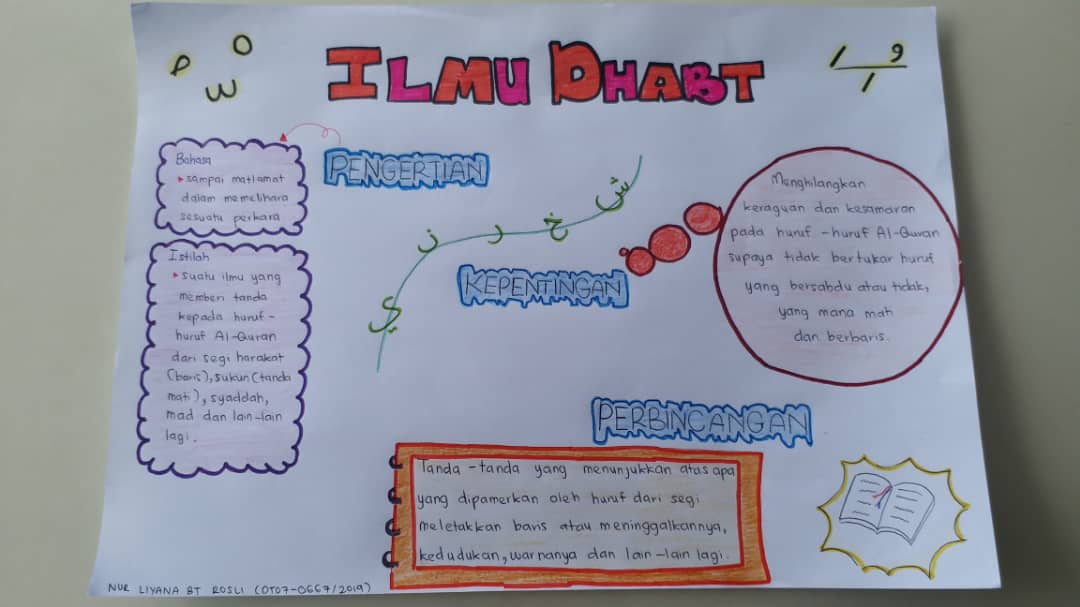 ILMU DHABT
PENGERTIAN
Bahasa
sampai matlamat
dalam memelihara
sesuatu perkara
Istilah
suatu ilmu yang
memberi tanda
kepada huruf -
huruf Al-Quran
dari segi harakat
(baris), sukun (tanda
mati), syaddah,
mad dan lain-lain
lagi.
ي ن ر خ ش
KEPENTINGAN
Menghilangkan
keraguan dan kesamaran
pada huruf -huruf Al-Quran
supaya tidak bertukar huruf
yang bersabdu atau tidak,
yang mana mati
dan berbaris.
PERBINCANGAN
Tanda -tanda yang menunjukkan atas apa
yang dipamerkan oleh huruf dari segi
meletakkan baris atau meninggalkannya,
kedudukan, warnanya dan lain-lain lagi.
NUR LIYANA BT ROSLI (OT07-0667/2019)